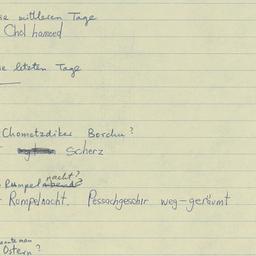 se mittleren Tage
Chol hamoed
se letzten Tage
Chometzdiker Borchu?
Scherz
nacht?
Rumpel
Rumpelnacht. Pessachgeschir weg-geräumt
Ostern?